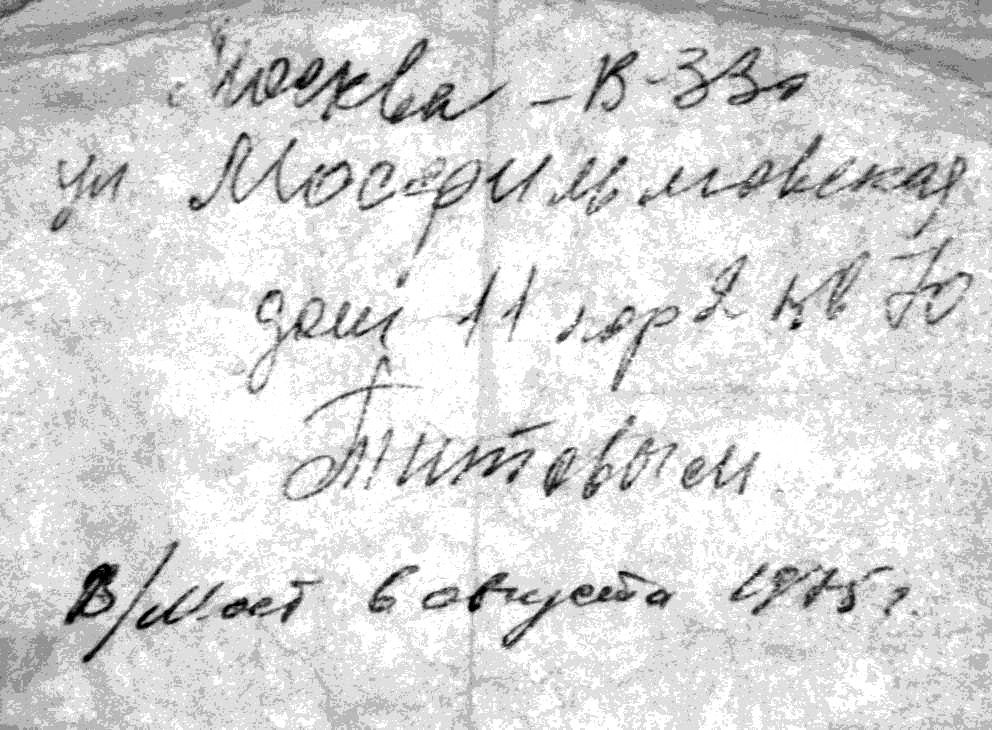 Москва - В-330
ул Мосфильмовская
дом 11 кор 2 кв 70
Титовым
В/Мост 6 августа 1975 г.